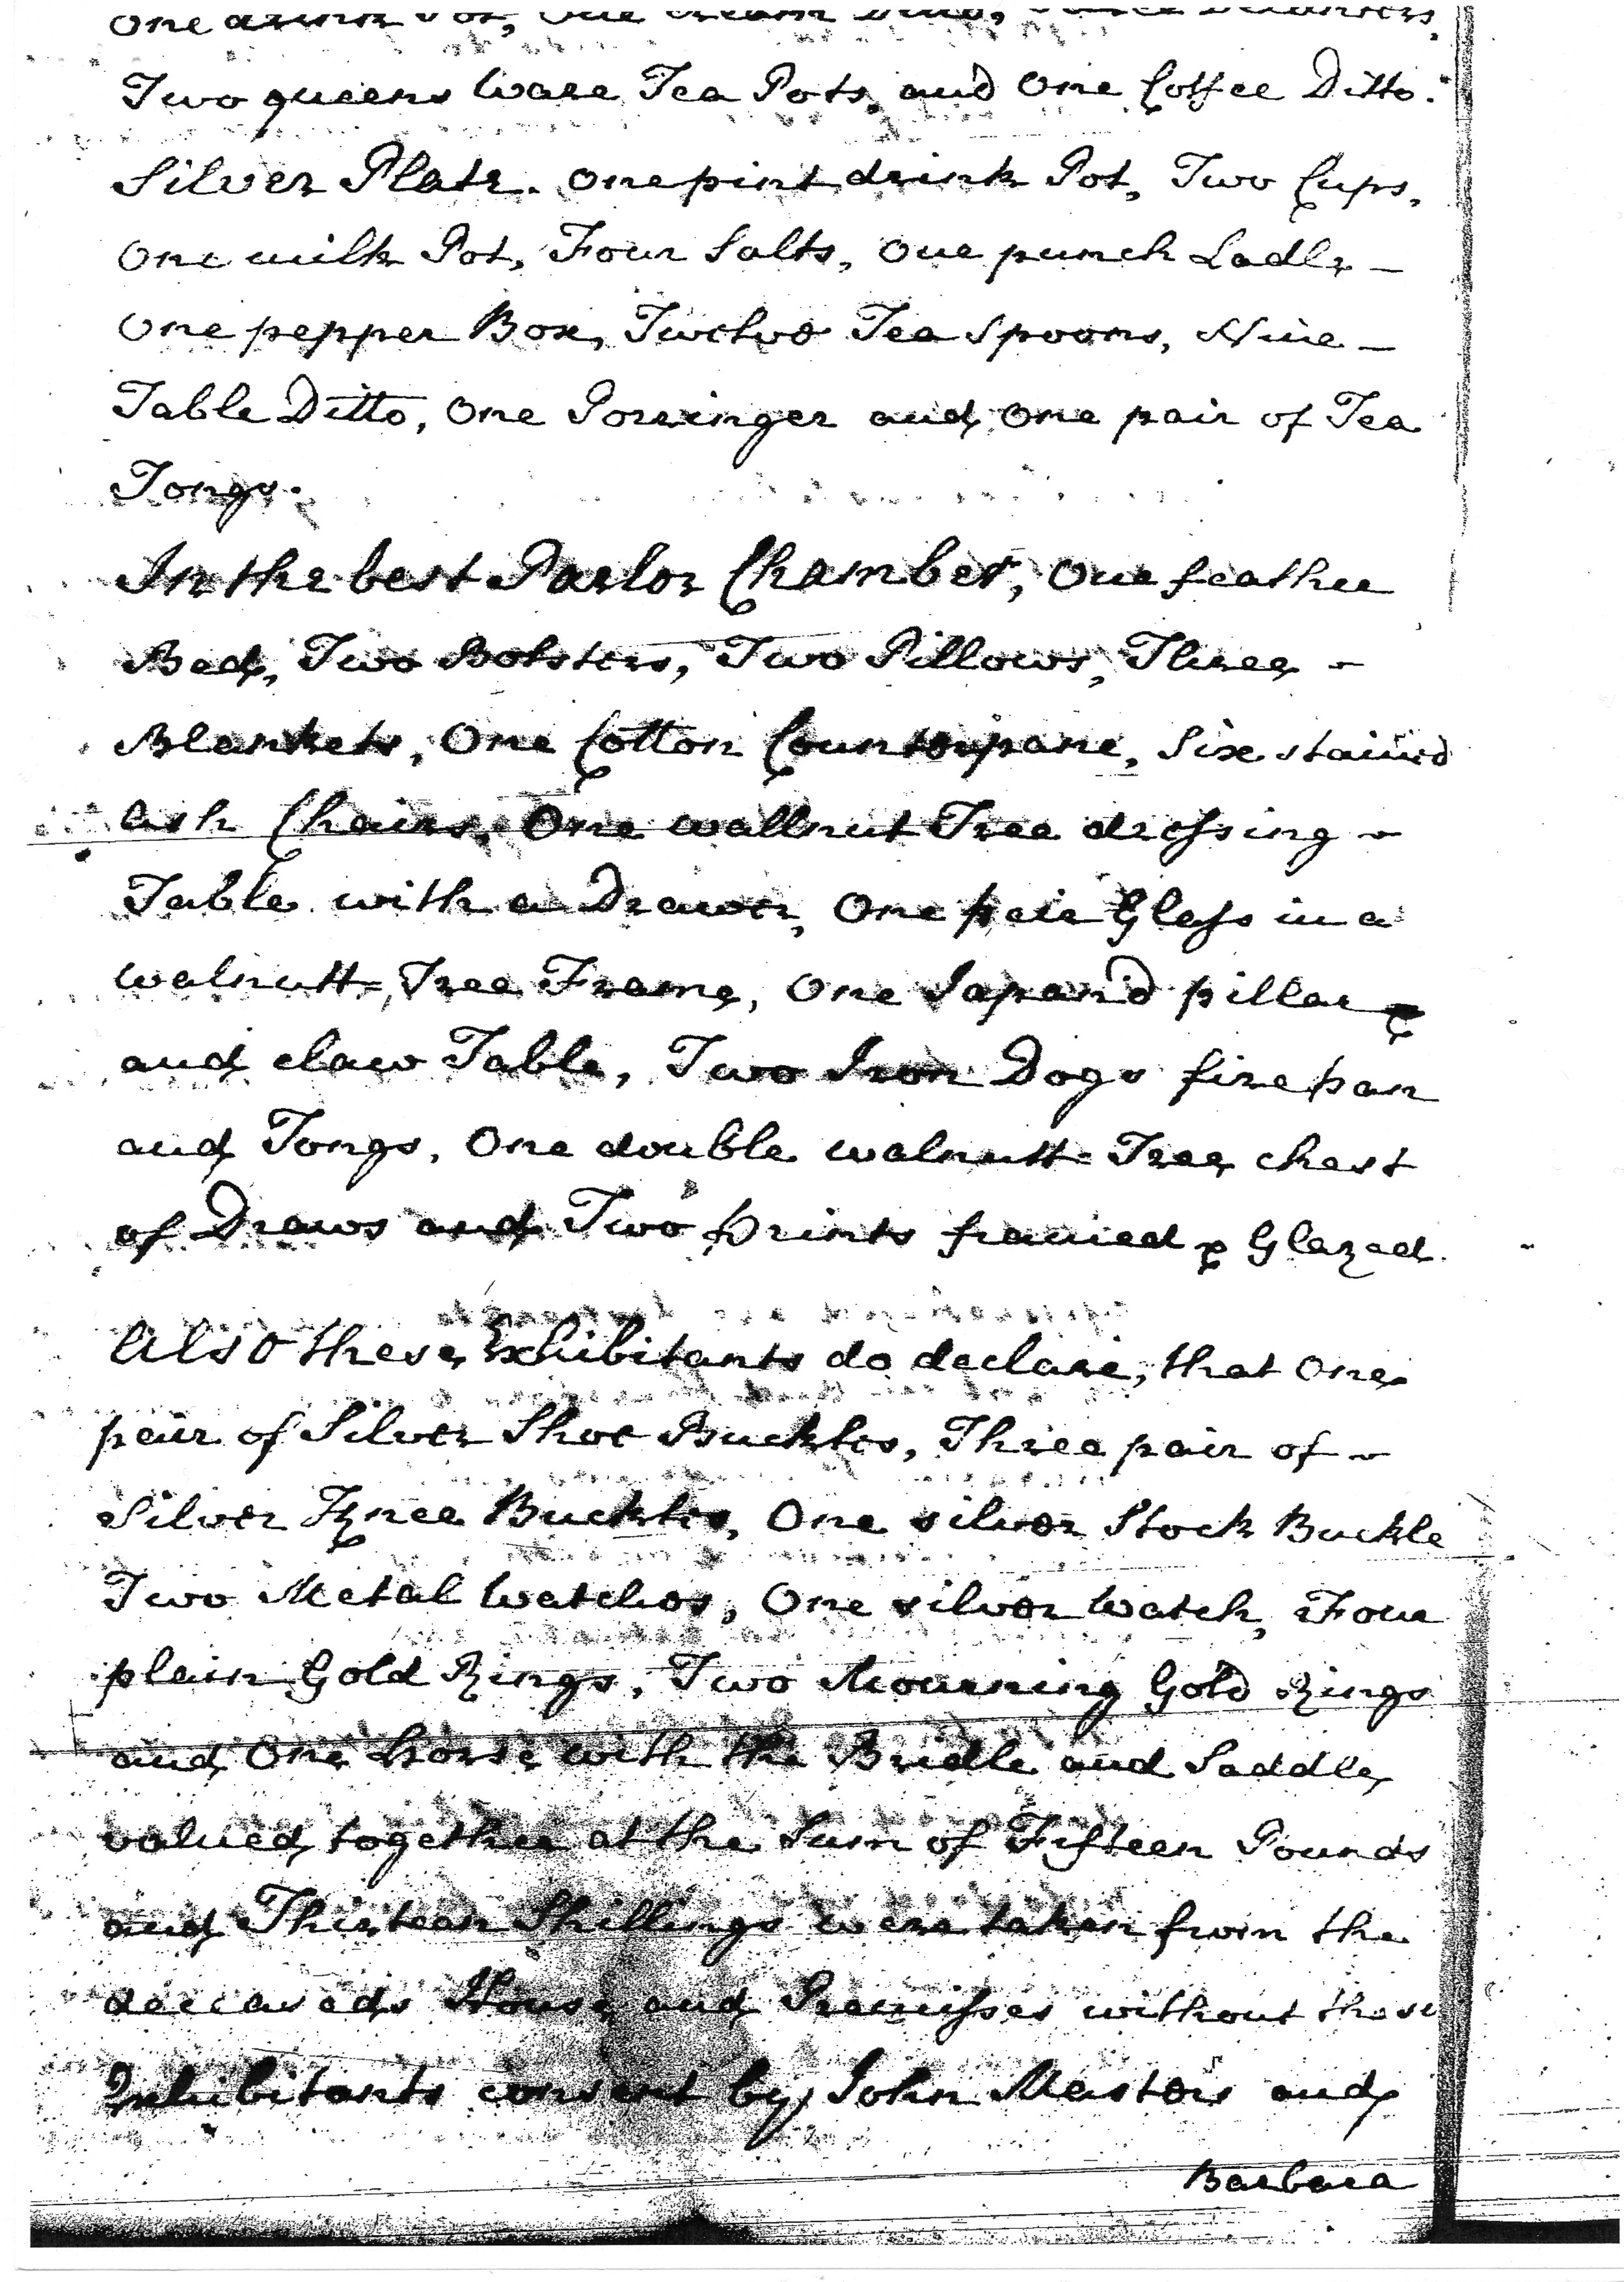 One drink Pot, One Cream
Two queens Ware Tea Pots, and One Coffee Ditto.
Silver Plate. One pint drink Pot, Two Cups,
One milk Pot, Four Salts, One punch Ladle –
One pepper Box, Twelve Tea Spoons, Nine –
Table Ditto, One Porringer and One pair of Tea
Tongs.
In the best Parlor Chamber, One feather
Bed, Two Bolsters, Two Pillows, Three –
Blankets, One Cotton Counterpane, Six stain'd
Ash Chairs, One wallnut Tree dressing –
Table with a Drawer, One peir Glass in a
walnutt= Tree Frame, One Japan'd pillar
and claw Table, Two Iron Dogs fire pan
and Tongs, One double walnutt= Tree chest
of Draws and Two prints framed & Glazed.
Also these Exhibitants do declare, that One
pair of Silver Shoe Buckles, Three pair of –
Silver Knee Buckles, One silver Stock Buckle
Two Metal Watches, One silver Watch, Four
plain Gold Rings, Two Mourning Gold Rings
and One Horse with the Bridle and Saddle,
valued together at the Sum of Fifteen Pounds
and Thirteen Shillings were taken from the
deceaseds House and Premisses without these
Inhibitants consent by John Masters and
Barbara